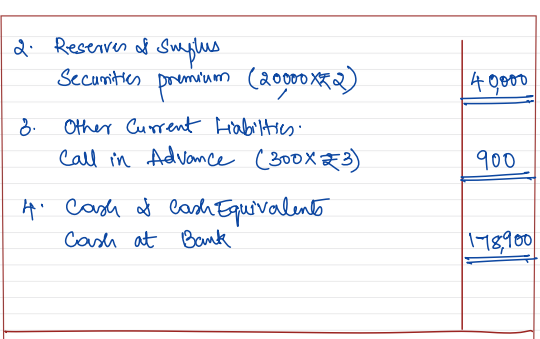 2. Reserves & Surplus
Securities premium (20,000X₹2) 40,000
3. Other Current Liabilities.
Call in Advance (300X₹3) 900
4. Cash & Cash Equivalents
Cash at Bank 178,900